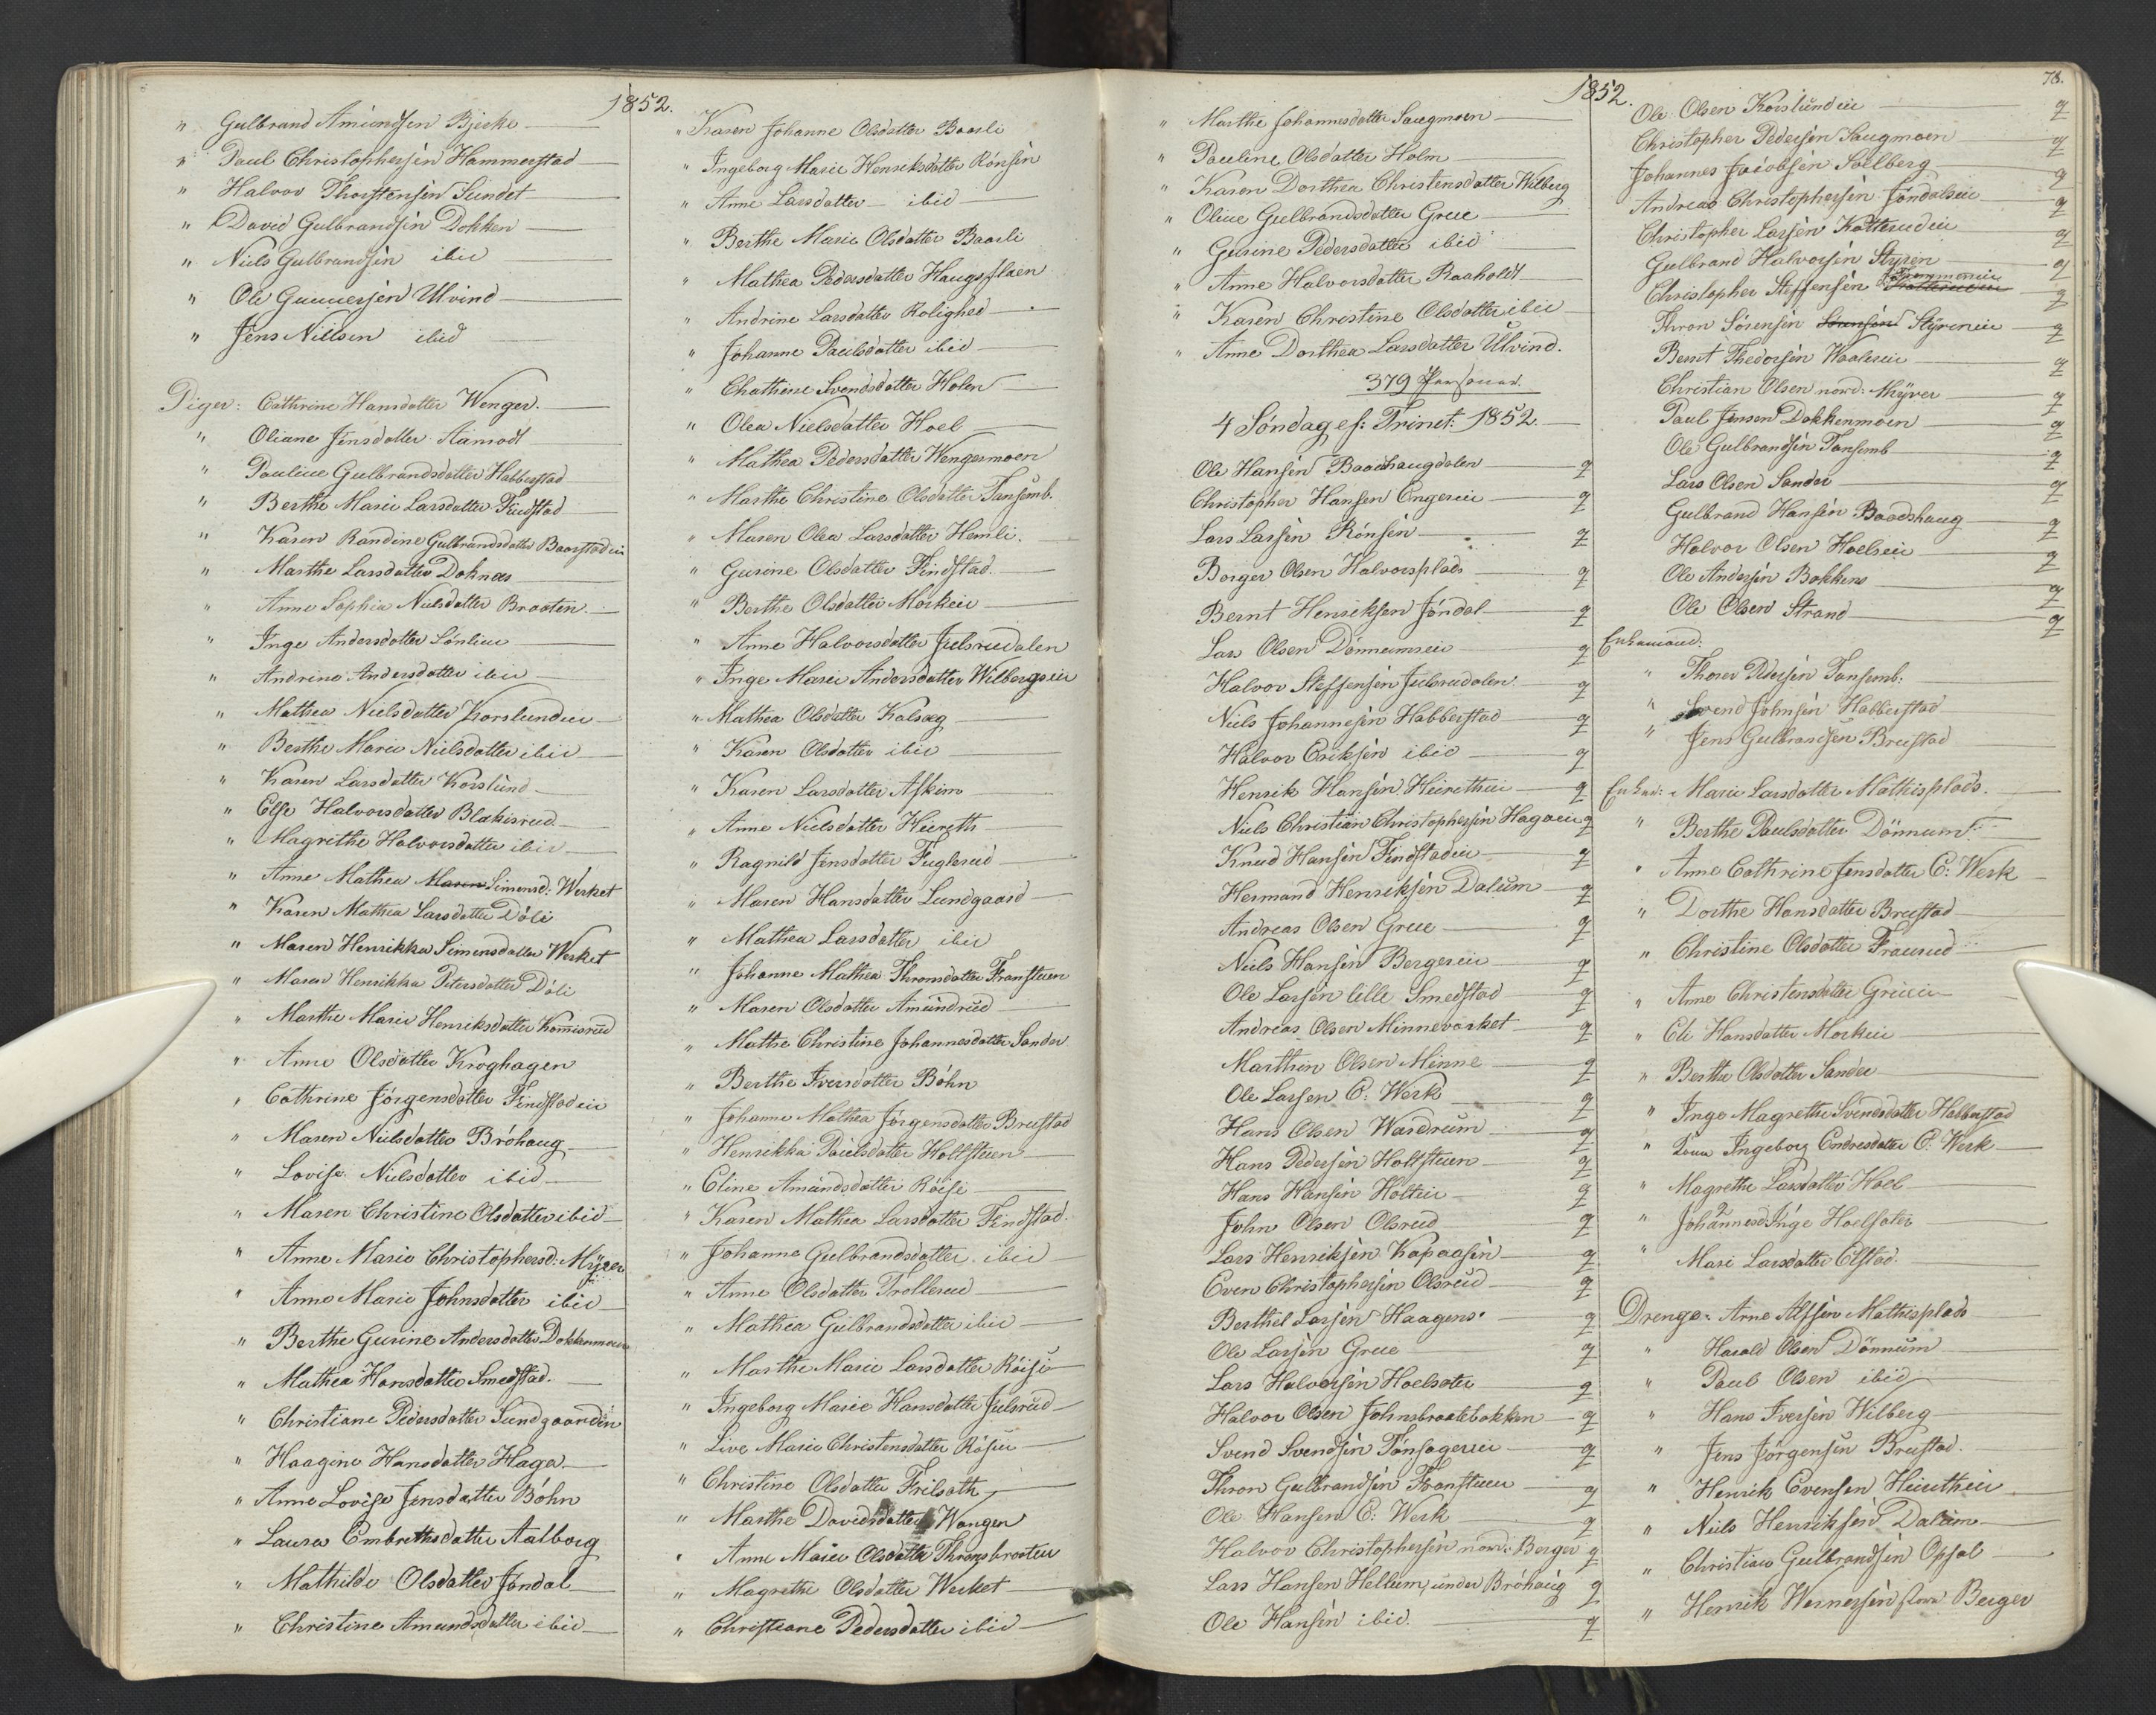 1852.
" Gulbrand Amundsen Bjerke
" Paul Christophersen Hammerstad
" Halvor Thorstensen Sundet
" David Gulbrandsen Dokken
" Niels Gulbrandsen ibid
" Ole Gunnersen Ulvind
" Jens Nilsen ibid
Piger: Cathrine Hansdatter Wenger.
" Oliane Jensdatter Aamodt
" Pauline Gulbrandsdatter Habberstad
" Berthe Marie Larsdatter Findstad
" Karen Randine Gulbrandsdatter Baarstadeie
" Marthe Larsdatter Doknæs
" Anne Sophia Nielsdatter Braaten
" Inge Andersdatter Lönlien
" Andrine Andersdatter ibid
" Mathea Nielsdatter Korslundeie
" Berthe Marie Nielsdatter ibid
" Karen Larsdatter Korslund
" Else Halvorsdatter Blakisrud
" Magrethe Halvorsdatter ibid
" Anne Mathea Maren Simensd: Werket
" Karen Mathea Larsdatter Döli
" Maren Henrikka Simensdatter Werket
" Maren Henrikka Petersdatter Döli
" Marthe Marie Henriksdatter Komisrud
" Anne Olsdatter Kroghagen
" Cathrine Jörgensdatter Findstadeie
" Maren Nielsdatter Bröhaug
" Lovise Nielsdatter ibid
" Maren Christine Olsdatter ibid
" Anne Marie Christophersd: Myrer
" Anne Marie Johnsdatter ibid
" Berthe Gurine Andersdatter Dokkenmoen
" Mathea Hansdatter Smedstad.
" Christiane Pedersdatter Sundgaarden
" Haagine Hansdatter Haga
" Anne Lovise Jensdatter Böhn
" Laura Embrethsdatter Aalborg
" Mathilde Olsdatter Jöndal
" Christine Amundsdatter ibid
" Karen Johanne Olsdatter Baarli
" Ingeborg Marie Henriksdatter Rönsen
" Anne Larsdatter ibid
" Berthe Marie Olsdatter Baarli
" Mathea Pedersdatter Haugsflaen
" Andrine Larsdatter Rolighed
" Johanne Paulsdatter ibid
" Chathrine Svendsdatter Holen
" Olea Nielsdatter Hoel
" Mathea Pedersdatter Wengermoen
" Marthe Christine Olsdatter Tansemb.
" Maren Olea Larsdatter Hemli.
" Gurine Olsdatter Findstad.
" Berthe Olsdatter Morkeie
" Anne Halvorsdatter Julsrudalen
" Inge Marie Andersdatter Wilbergseie
" Mathea Olsdatter Kalsæg
" Karen Olsdatter ibid
" Karen Larsdatter Askim
" Anne Nielsdatter Hiereth
" Ragnild Jensdatter Fuglerud
" Maren Hansdatter Lundgaard
" Mathea Larsdatter ibid
" Johanne Mathea Thronsdatter Franstuen
" Maren Olsdatter Amundrud
" Mathe Christine Johannesdatter Sander
" Berthe Iversdatter Böhn
" Johanne Mathea Jörgensdatter Brustad
" Henrikka Paulsdatter Holtstuen
" Eline Amundsdatter Röise
" Karen Mathea Larsdatter Findstad
" Johanne Gulbrandsdatter ibid
" Anne Olsdatter Trollerud
" Mathea Gulbrandsdatter ibid
" Marthe Marie Larsdatter Röise
" Ingeborg Marie Hansdatter Julsrud
" Live Marie Christensdatter Röseie
" Christine Olsdatter Frilseth
" Marthe Davidsdatter Wangen
" Anne Marie Olsdatter Thronsbraaten
" Magrethe Olsdatter Werket
" Christiane Pedersdatter ibid
1852.
78.
" Marthe Johannesdatter Saugmoen
" Pauline Olsdatter Holm
" Karen Dorthea Christensdatter Wilberg
" Oline Gulbrandsdatter Grue
" Gurine Pedersdatter ibid
" Anne Halvorsdatter Raaholdt
" Karen Christine Olsdatter ibid
" Anne Dorthea Larsdatter Ulvind.
379 Personer.
4 Söndag ef: Trinit: 1852.
Ole Hansen Baadhaugdalen q
Christopher Hansen Engereie q
Lars Larsen Rönsen q
Borger Olsen Halvorsplads q
Bernt Henriksen Jöndal q
Lars Olsen Dönnumseie q
Halvor Steffensen Julsrudalen q
Niels Johannesen Habberstad q
Halvor Eriksen ibid q
Henrik Hansen Hierétheie q
Niels Christian Christophersen Hagaeie q
Knud Hansen Findstadeie q
Hermand Henriksen Dalum q
Andreas Olsen Grue q
Niels Hansen Bergereie q
Ole Larsen lille Smedstad q
Andreas Olsen Minneværket q
Marthin Olsen Minne q
Ole Larsen E: Werk q
Hans Olsen Wardrum q
Hans Pedersen Holtstuen q
Hans Hansen Holteie q
John Olsen Olsrud q
Lars Henriksen Kopaasen q
Even Christophersen Olsrud q
Berthel Larsen Haagens. q
Ole Larsen Grue q
Lars Halvorsen Hoelsæter q
Halvor Olsen Johnsbraatebakken q
Svend Svendsen Tönsagereie q
Thron Gulbrandsen Franstuen q
Ole Hansen E: Werk q
Halvor Christophersen nord: Berger q
Lars Hansen Hellum, under Bröhaug q
Ole Hansen ibid. q
Ole Olsen Korslundeie q
Christopher Pedersen Saugmoen q
Johannes Jacobsen Soelberg q
Andreas Christophersen Jöndalseie q
Christopher Larsen Katterudeie q
Gulbrand Halvorsen Styren q
Christopher Steffensen q
Thron Sörensen Sörensen Styreneie q
Bernt Thedorsen Waalereie q
Christian Olsen nord: Myrer q
Paul Jensen Dokkenmoen q
Ole Gulbrandsen Tansemb q
Lars Olsen Sander q
Gulbrand Hansen Baadshaug q
Halvor Olsen Hoelseie q
Ole Andersen Bakkene q
Ole Olsen Strand q
Enkemænd:
" Thorer Pedersen Tansemb.
" Svend Johnsen Habberstad
" Jens Gulbrandsen Brustad
Enker: Marie Larsdatter Mathisplads.
" Berthe Paulsdatter Dönnum
" Anne Cathrine Jensdatter E: Werk
" Dorthe Hansdatter Brustad
" Christine Olsdatter Fraurud
" Anne Christensdatter Grueeie
" Eli Hansdatter Morkeie
" Berthe Olsdatter Sander
" Inge Magrethe Svendsdatter Habberstad
" Ingeborg Endresdatter E: Werk
" Magrethe Larsdatter Hoel
" Johannesd Inge Hoelsæter
" Mari Larsdatter Elstad.
Drenge: Arne Alfsen Mathisplads
" Harald Olsen Dönnum
" Paul Olsen ibid
" Hans Iversen Wilberg
" Jens Jörgensen Brustad.
" Henrik Evensen Hieretheie
" Niels Henriksen Dalum
" Christian Gulbrandsen Opsal
" Henrik Wernersen store Berger